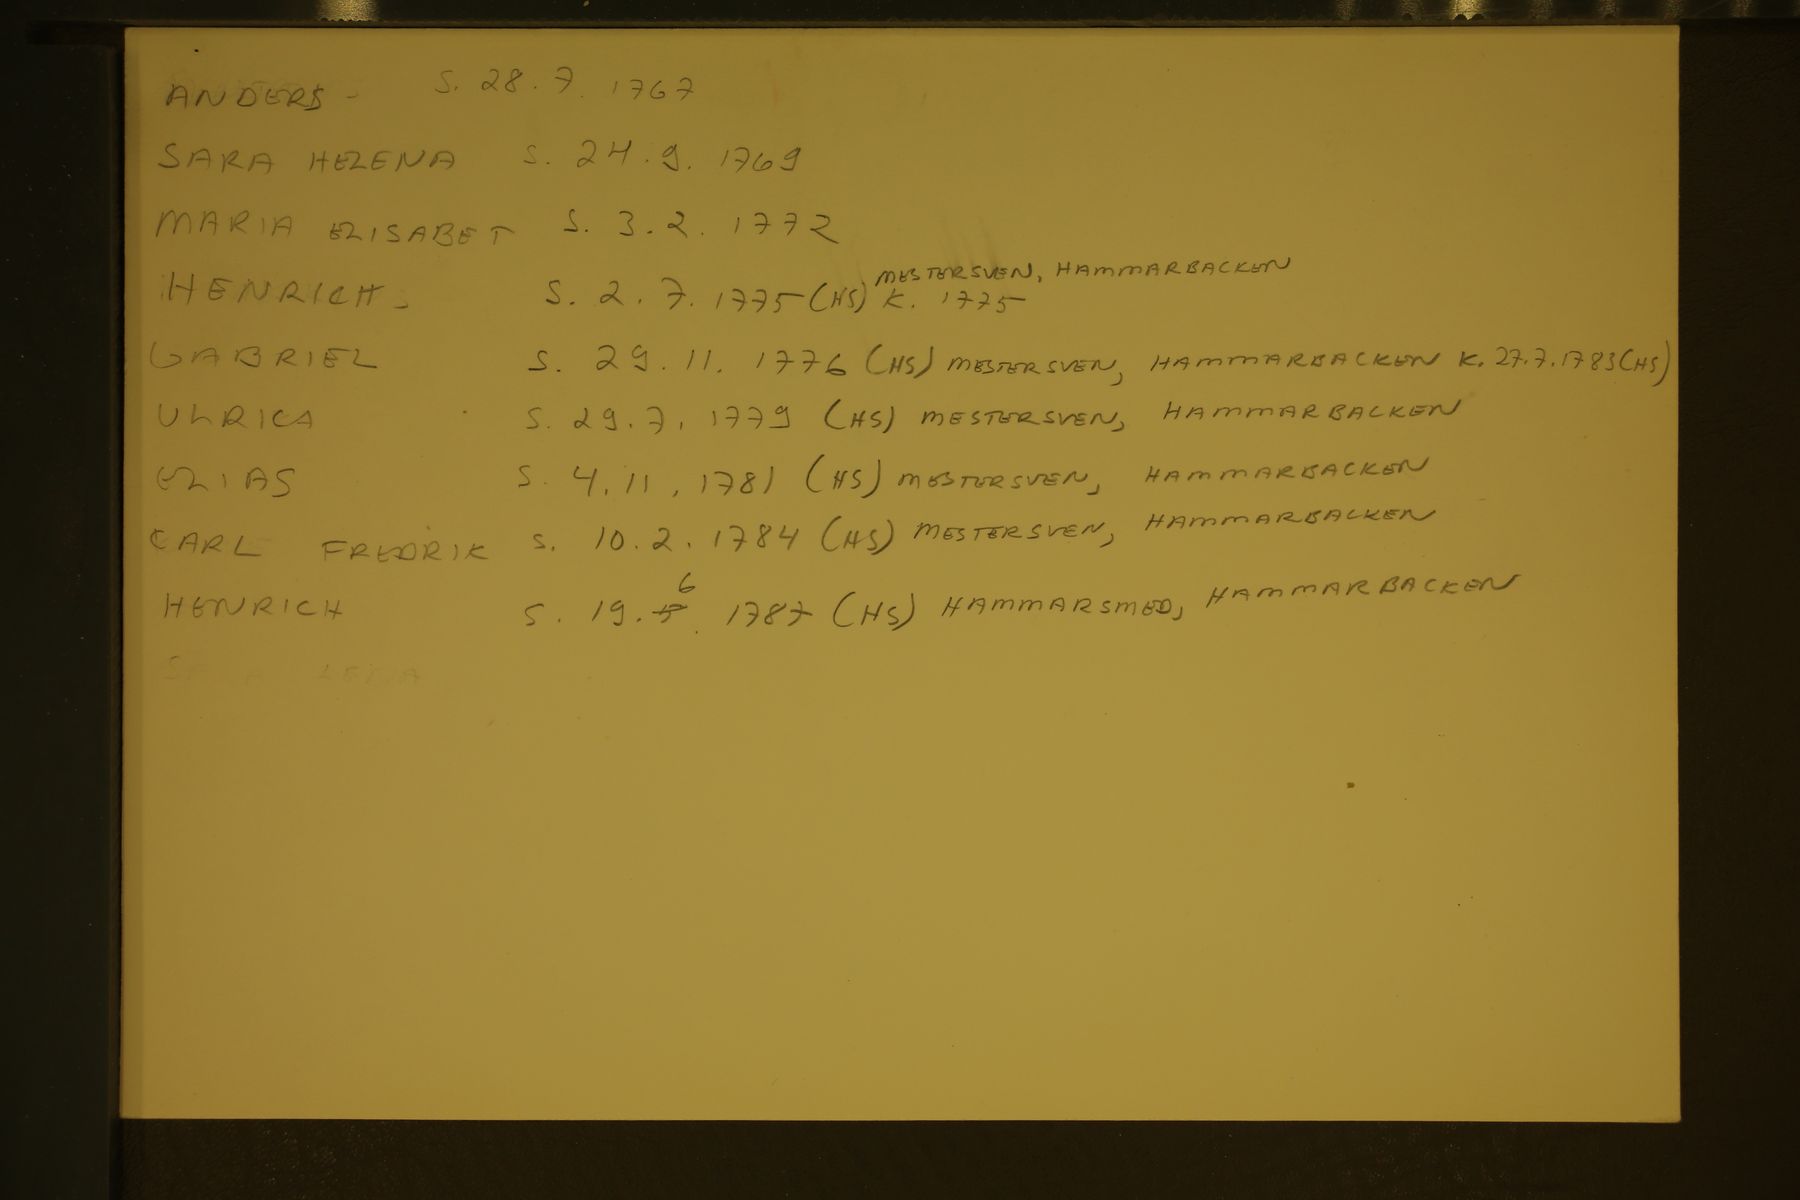 ANDERS - S. 28.7. 1767
SARA HELENA S. 24.9. 1769
MARIA ELISABET S. 3.2. 1772
MESTERSVEN, HAMMARBACKEN
HENRICH - S. 2.7. 1775 (HS) K. 1775
GABRIEL S. 29.11. 1776 (HS) MESTERSVEN, HAMMARBACKEN K. 27.7.1783 (HS)
ULRICA S. 29.7. 1779 (HS) MESTERSVEN, HAMMARBACKEN
ELIAS S. 4.11. 1781 (HS) MESTERSVEN, HAMMARBACKEN
CARL FREDRIK S. 10.2. 1784 (HS) MESTERSVEN, HAMMARBACKEN
6
HENRICH S. 19. 1787 (HS) HAMMARSMED, HAMMARBACKEN
LENA